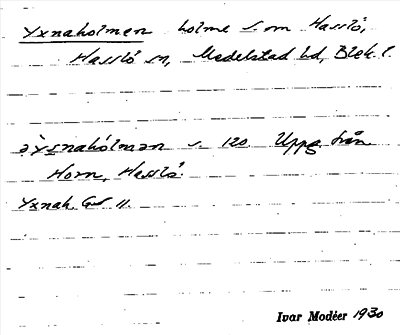 Yxnaholmen holme S. om Hasslö,
Hasslö sn, Medelstad hd, Blek. l.
s. 120. Uppg. från
Horn, Hasslö.
Yxnah. GS 11.
Ivar Modéer 1930